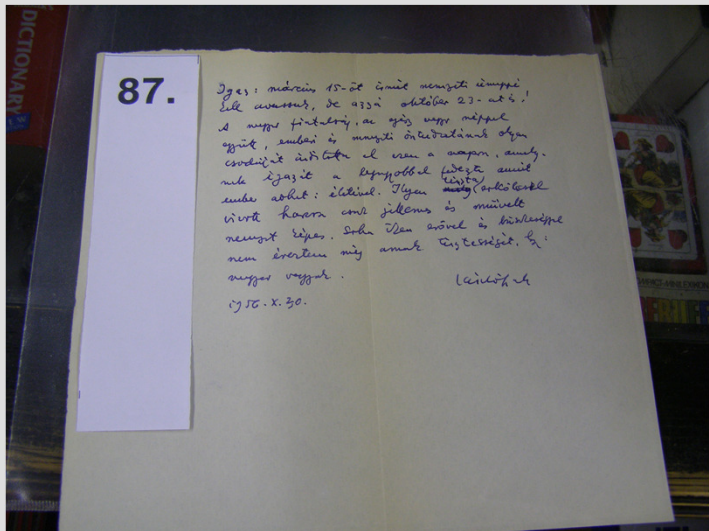 DICTIONARY
87.
Igaz: március 15-öt ismét nemzeti ünneppé
kell avassuk, de azzá október 23-at is!
A magyar fiatalság, az egész magyar néppel
együtt, emberi és nemzeti öntudatának olyan
csodáját mutatta el ezen a napon, amely-
nek igazát a legnagyobbel fedezte amit
ember adhat: életével. Ilyen tiszta erkölccsel
vívott harcra csak jellemes és művelt
nemzet képes. Soha ilyen erővel és büszkeséggel
nem éreztem még annak tisztességét, hogy
magyar vagyok.
1956. X. 30.